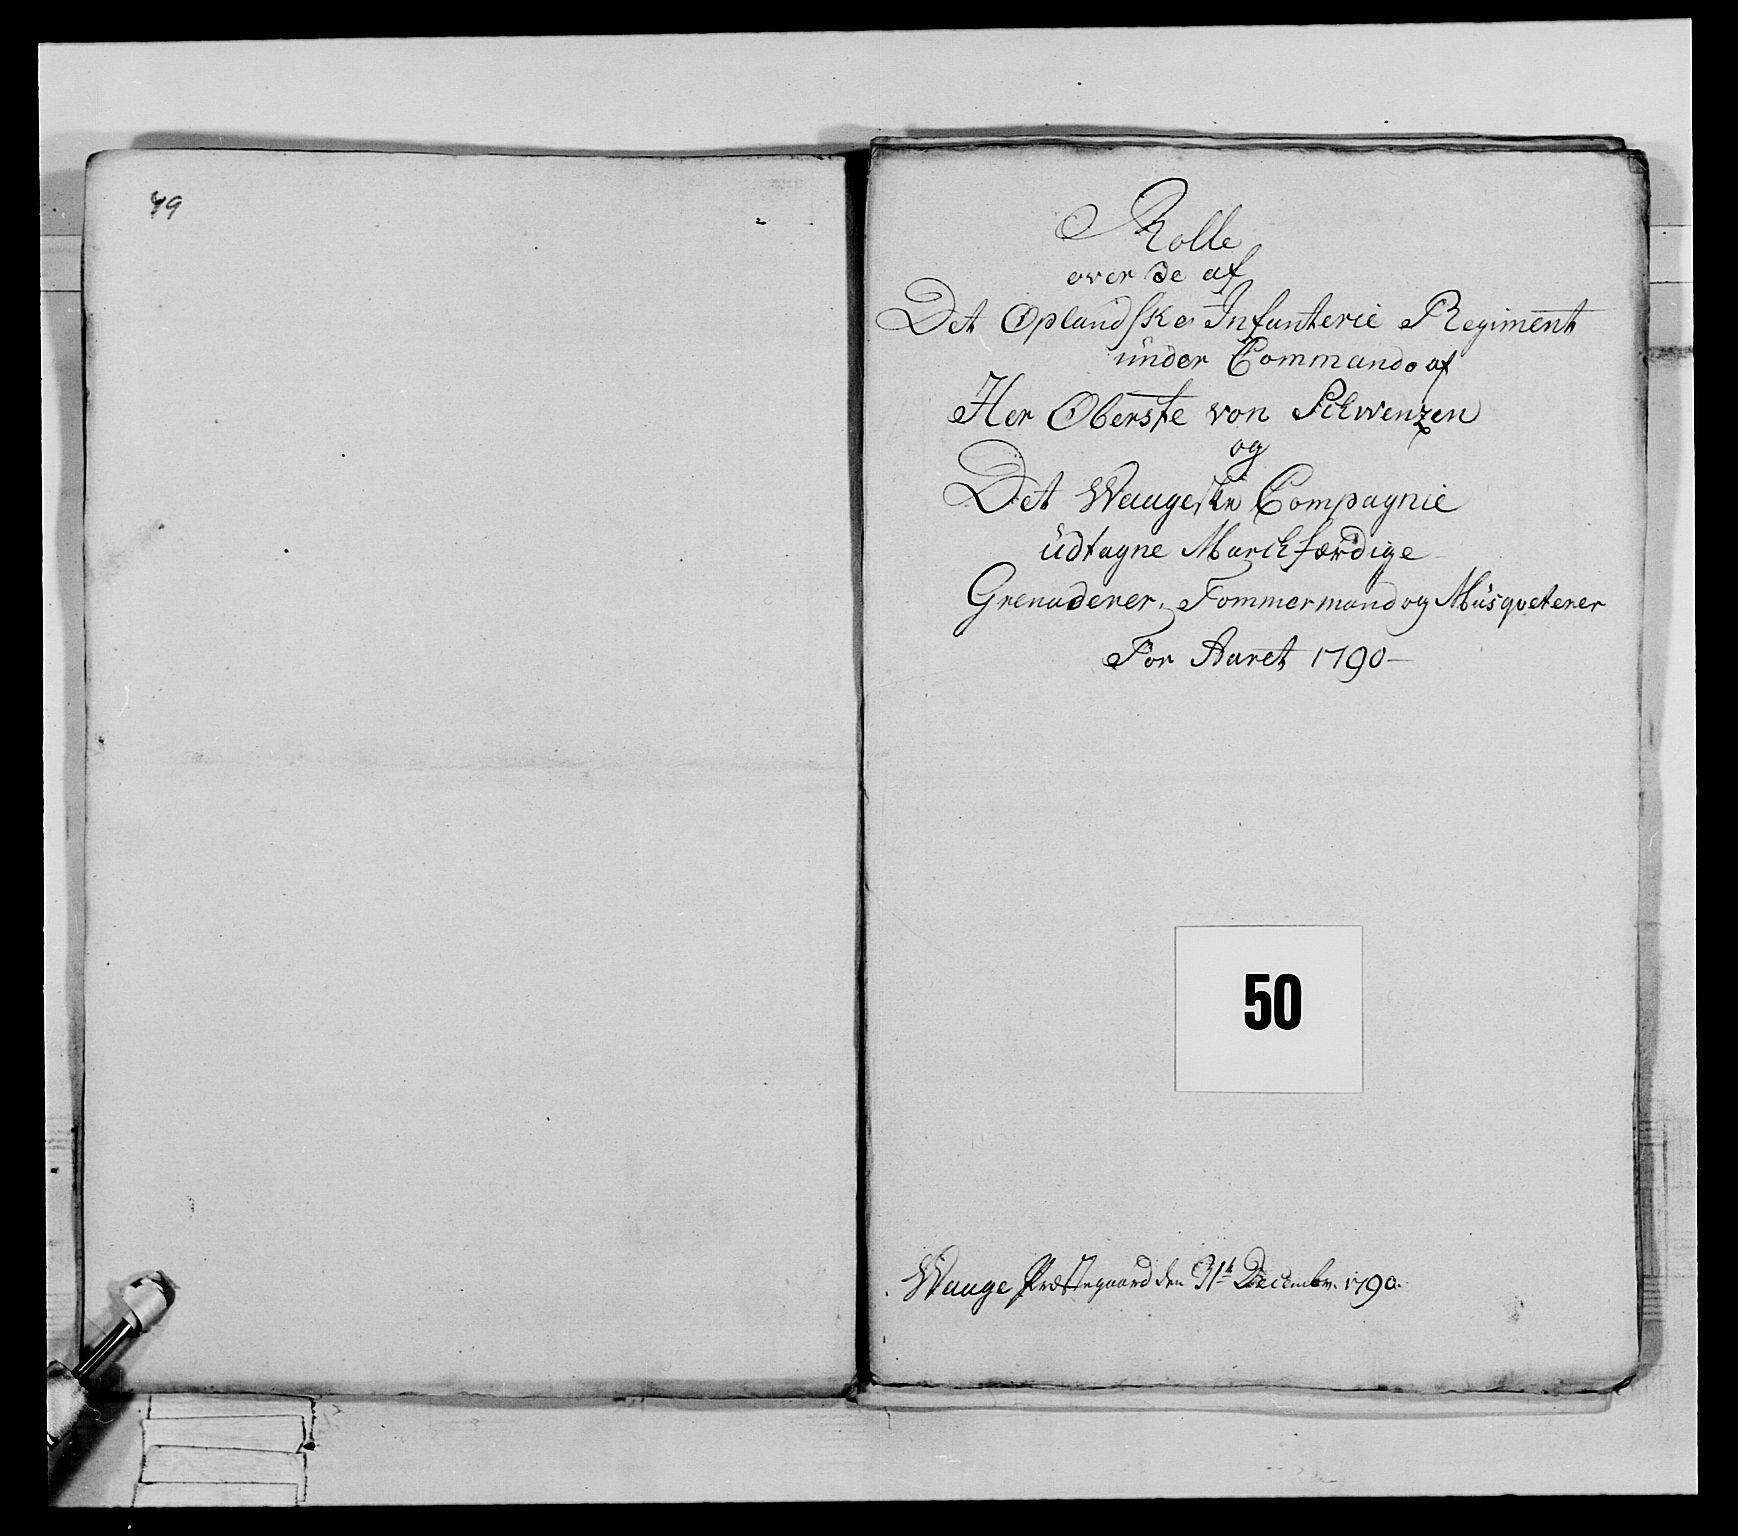 49
Rolle
over de af
Det Oplandske Infanterie Regiment
under Commando af
Her Oberste von Schwenzen
og
Det Waageske Compagnie
udtagne Marchfærdige
Grenaderer, Tommermand og Musqveterer
For Aaret 1790
50
Waage Præstegaard den 31te Decembr. 1790.